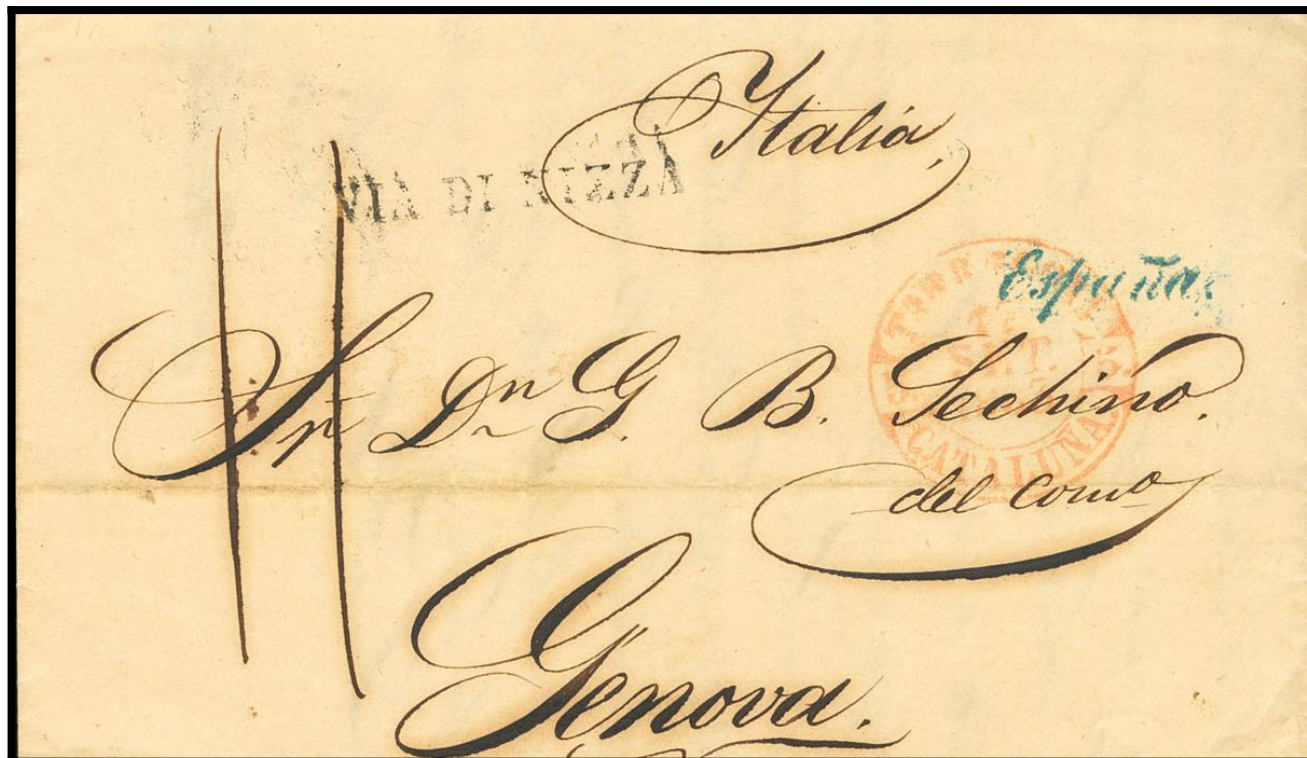 Italia,
VIA DI NIZZA
España
CATALUÑA
Sr. Dn. G. B. Sechino.
del como
Genova.
11